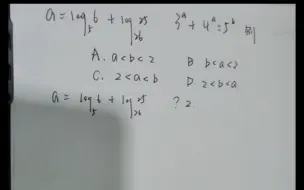 a = log₅6 + log₂₆25 3ᵃ + 4ᵃ = 5ᵇ 则
A. a < b < 2 B b < a < 2
C. 2 < a < b D. 2 < b < a
a = log₅6 + log₂₆25 ? 2